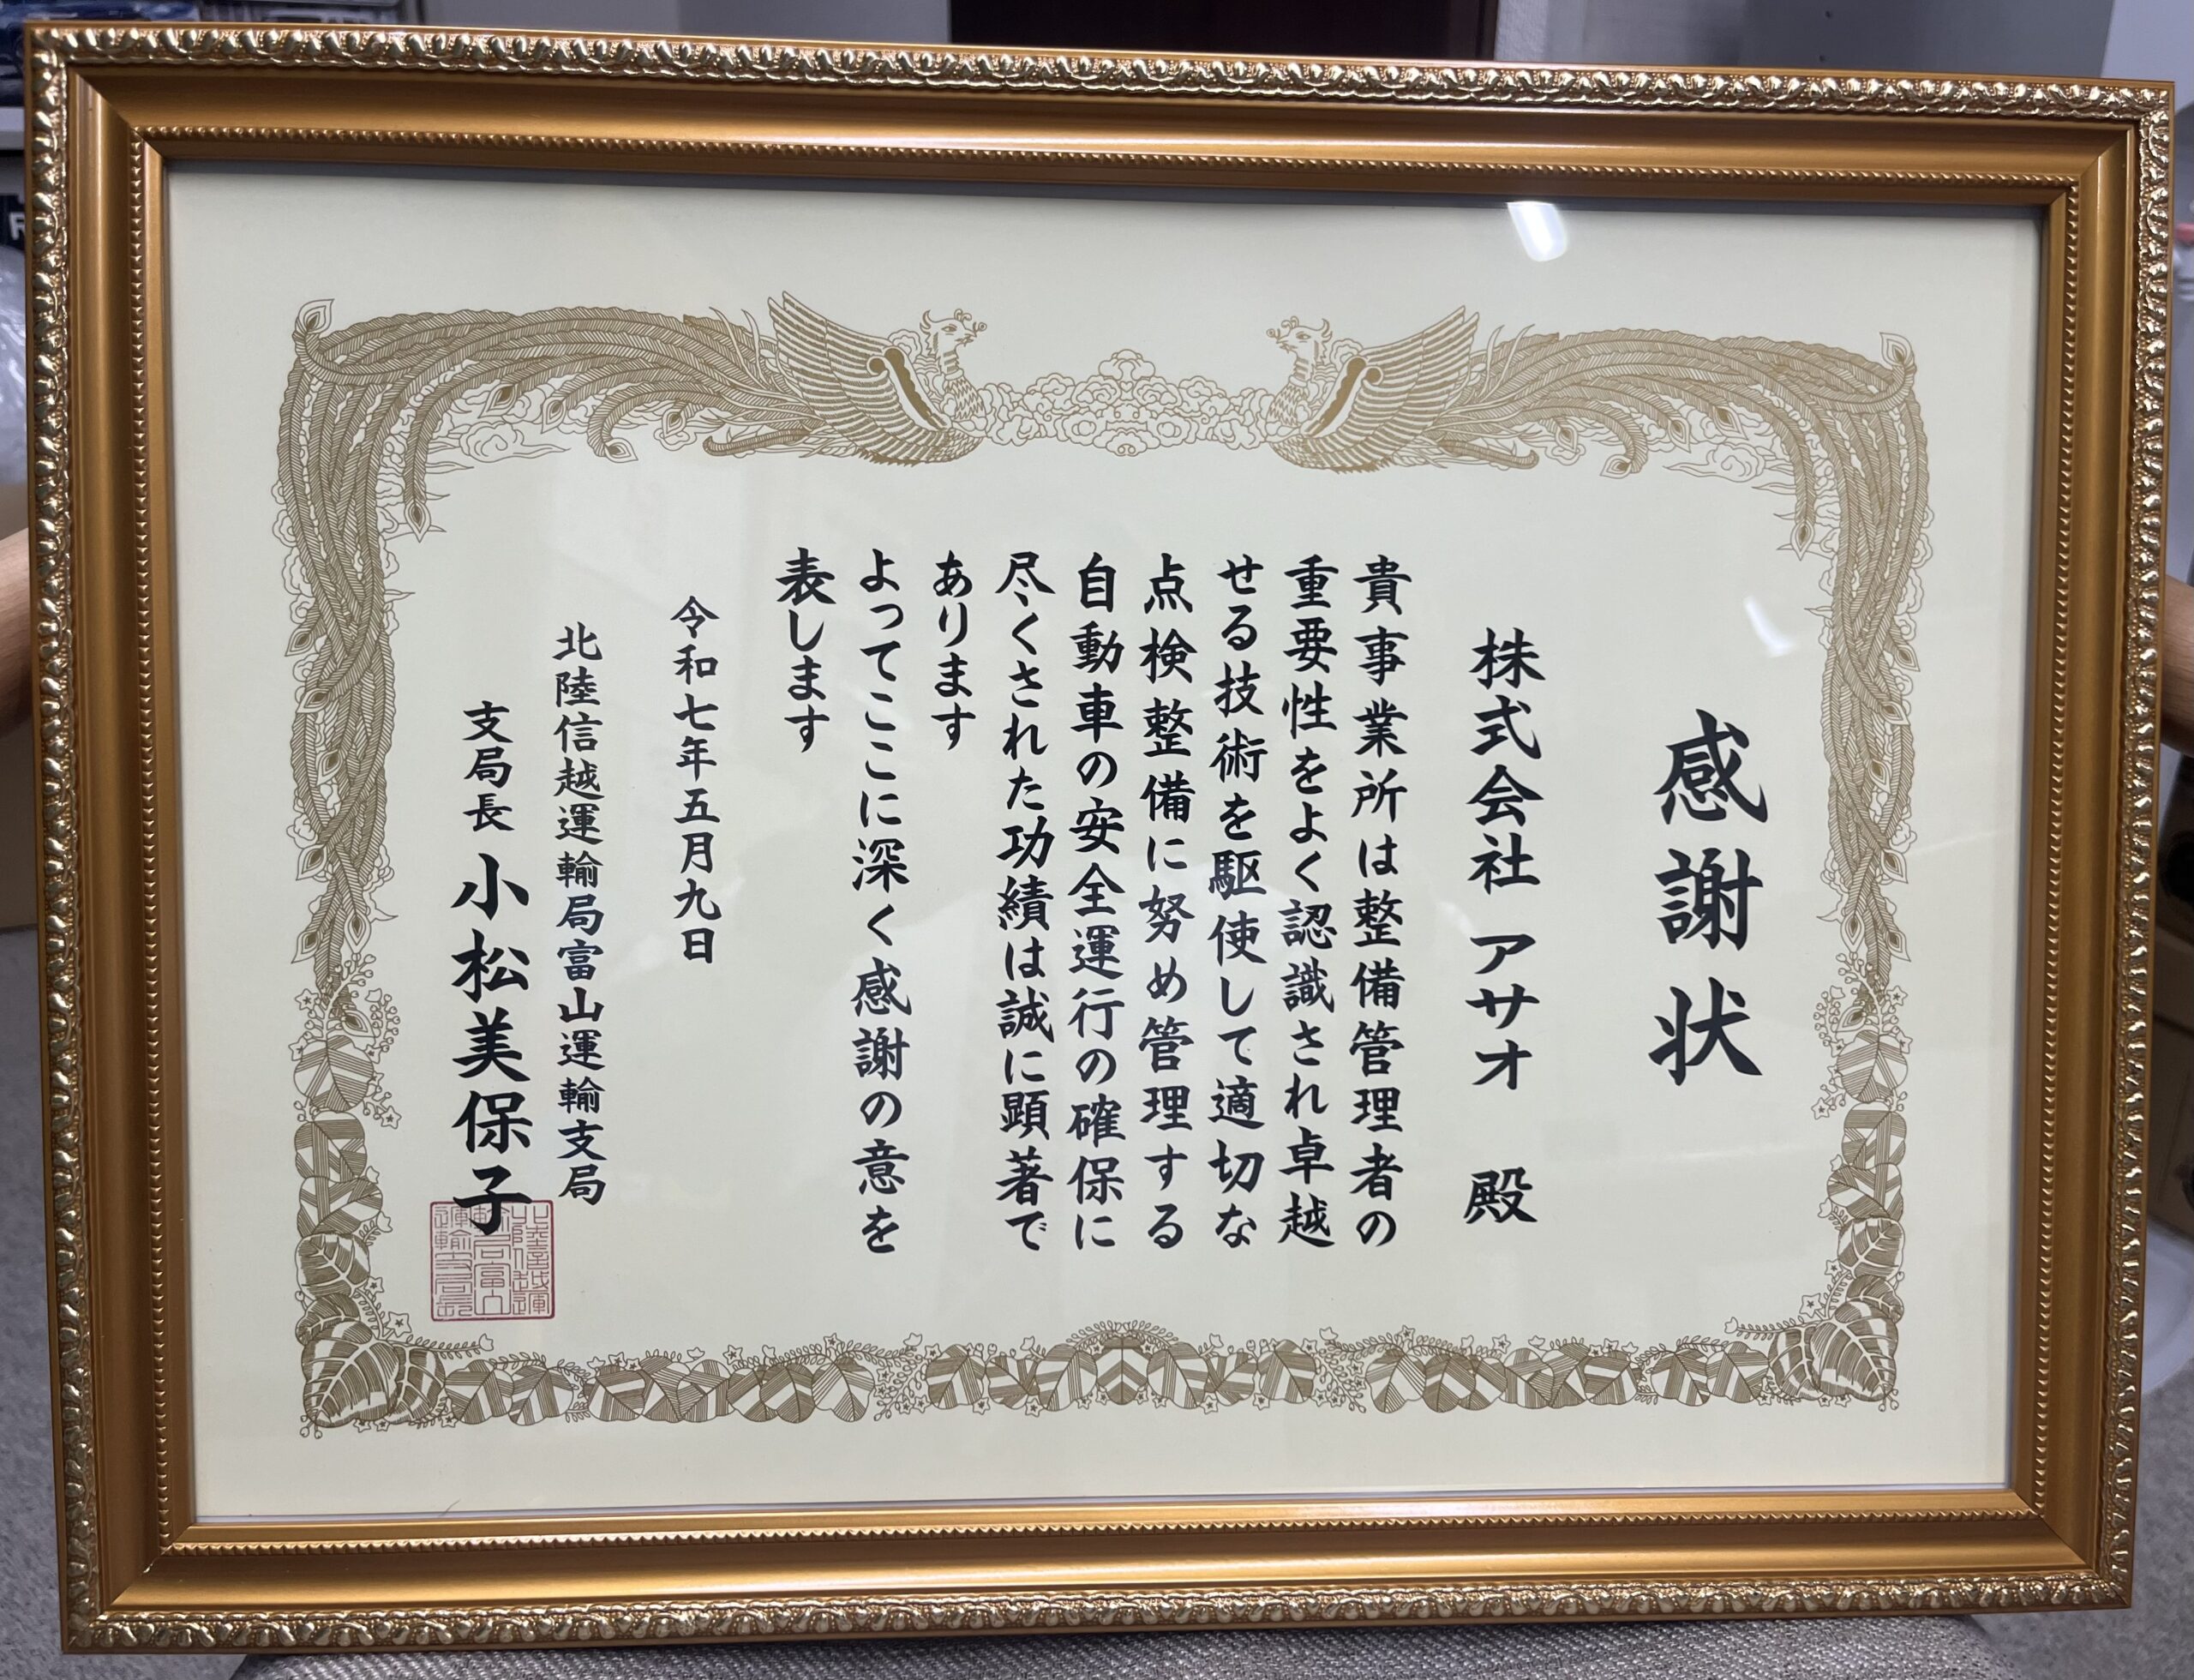 感謝状
株式会社 アサオ 殿
貴事業所は整備管理者の
重要性をよく認識され卓越
せる技術を駆使して適切な
点検整備に努め管理する
自動車の安全運行の確保に
尽くされた功績は誠に顕著で
あります
よってここに深く感謝の意を
表します
令和七年五月九日
北陸信越運輸局富山運輸支局
支局長 小松美保子
北陸信越運
輸局富山
運輸支局長